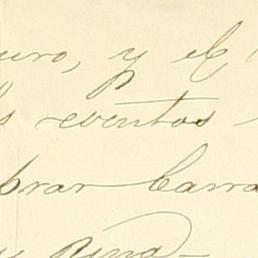 uro, y el
s eventos
brar Carra
y Pina